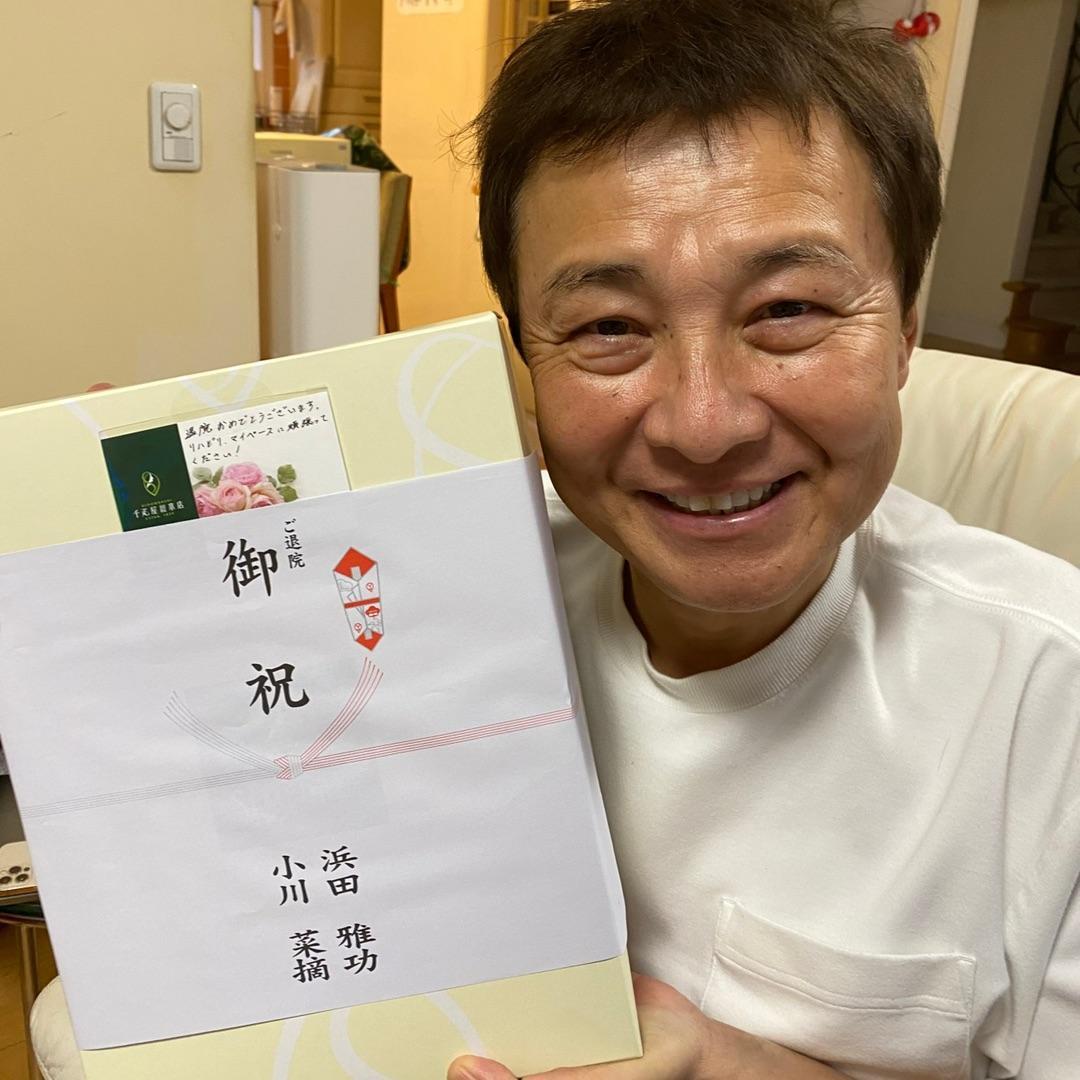 退院おめでとうございます。
リハビリ、マイペースに頑張って
ください！
千疋屋総本店
ご退院
御祝
浜田 雅功
小川 菜摘